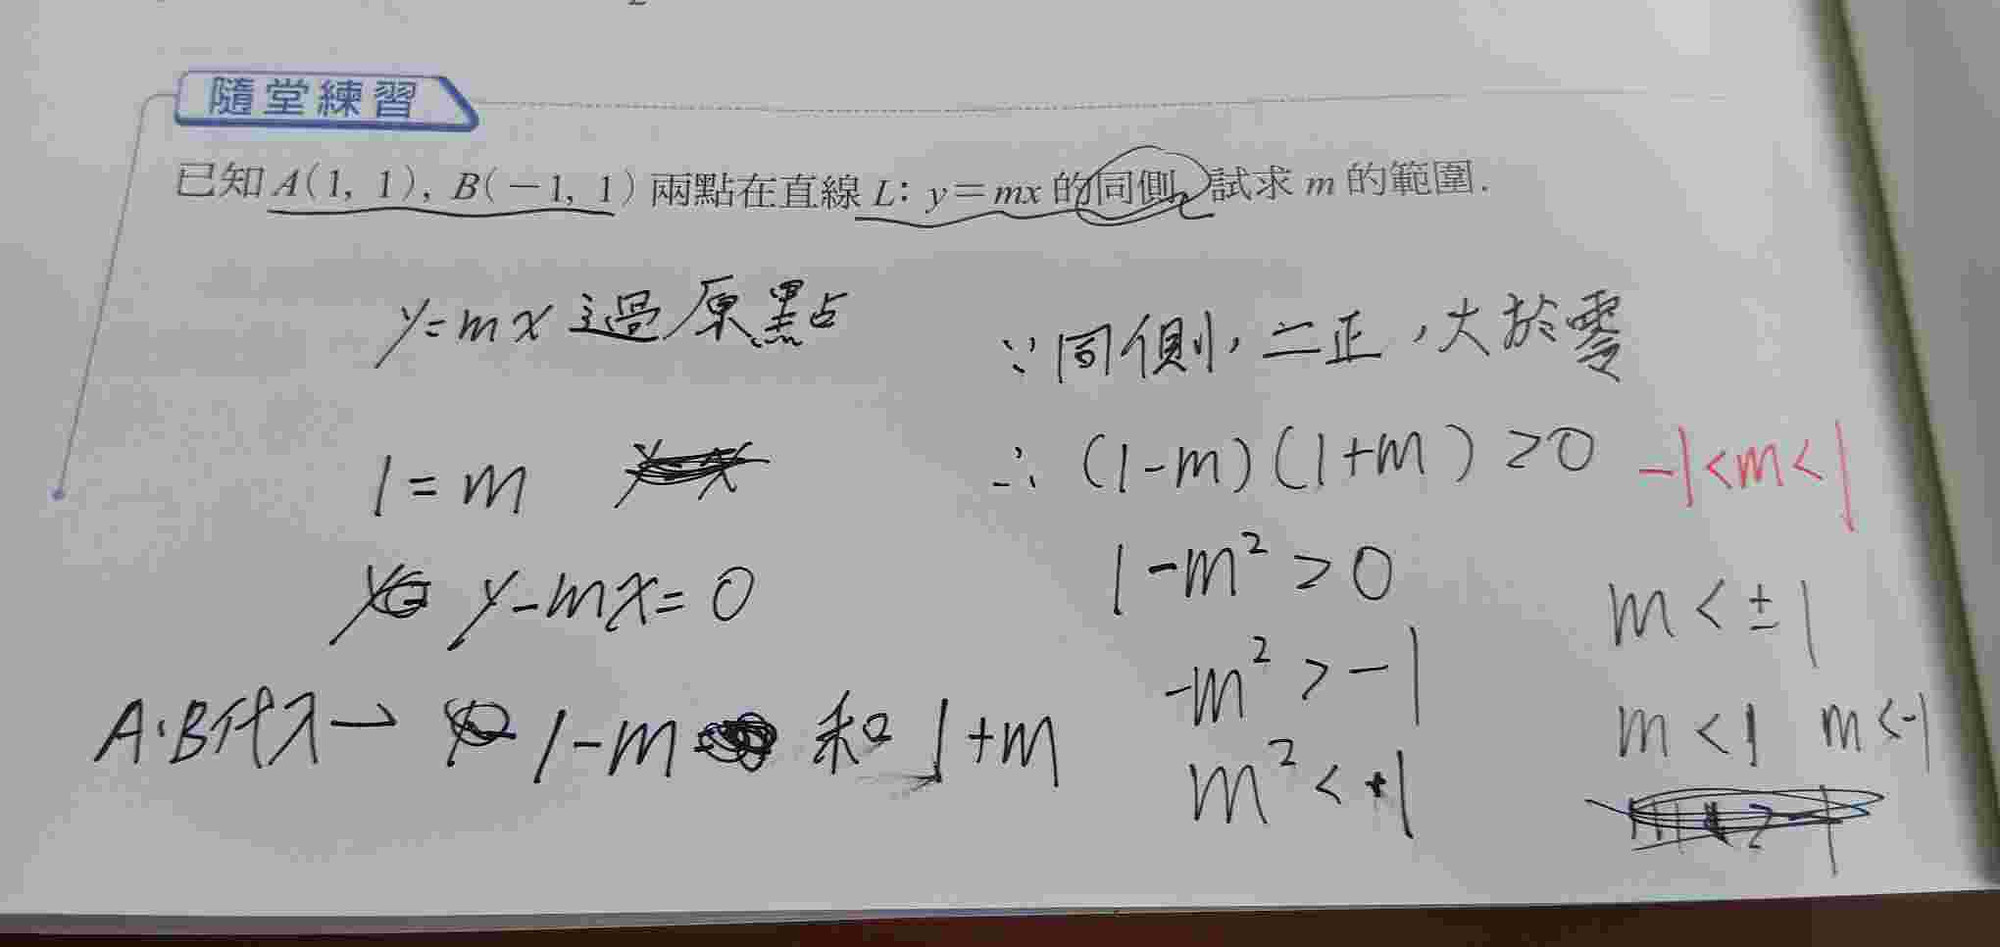 隨堂練習
已知 A(1, 1), B(-1, 1) 兩點在直線 L: y=mx 的同側, 試求 m 的範圍.
y=mx 過原點
1=m
y-mx=0
A·B代入→ 1-m 和 1+m
∵同側,二正,大於零
∴ (1-m)(1+m)>0
-1<m<1
1-m²>0
-m²>-1
m²<+1
m<±1
m<1 m<-1